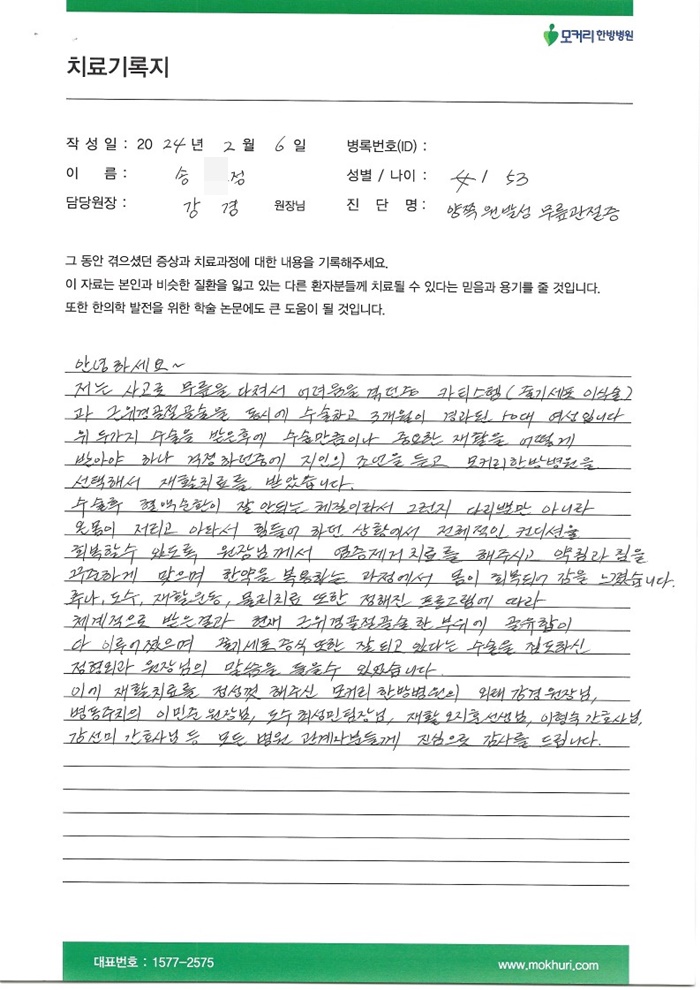 모커리한방병원
치료기록지
작성일 : 2024년 2월 6일 병록번호(ID) :
이 름 : 송 정 성별 / 나이 : 女 / 53
담당원장 : 강 경 원장님 진 단 명 : 양쪽 원발성 무릎관절증
그 동안 겪으셨던 증상과 치료과정에 대한 내용을 기록해주세요.
이 자료는 본인과 비슷한 질환을 앓고 있는 다른 환자분들께 치료될 수 있다는 믿음과 용기를 줄 것입니다.
또한 한의학 발전을 위한 학술 논문에도 큰 도움이 될 것입니다.
안녕하세요~
저는 사고로 무릎을 다쳐서 어려움을 겪던중 카티스템(줄기세포 이식술)
과 근위경골절골술을 동시에 수술하고 3개월이 경과된 50대 여성입니다
위 두가지 수술을 받은후에 수술만큼이나 중요한 재활을 어떻게
받아야 하나 걱정하던중에 지인의 조언을 듣고 모커리한방병원을
선택해서 재활치료를 받았습니다.
수술후 혈액순환이 잘 안되는 체질이라서 그런지 다리뿐만 아니라
온몸이 저리고 아파서 힘들어 하던 상황에서 전체적인 컨디션을
회복할수 있도록 원장님께서 염증제거 치료를 해주시고 약침과 침을
꾸준하게 맞으며 한약을 복용하는 과정에서 몸이 회복되어 감을 느꼈습니다.
추나, 도수, 재활운동, 물리치료 또한 정해진 프로그램에 따라
체계적으로 받은결과 현재 근위경골절골술한 부위에 골유합이
다 이루어졌으며 줄기세포 증식 또한 잘 되고 있다는 수술을 집도하신
정형외과 원장님의 말씀을 들을수 있었습니다.
이에 재활치료를 정성껏 해주신 모커리한방병원의 외래 강경 원장님,
병동주치의 이민주 원장님, 도수 최성민팀장님, 재활 오지훈선생님, 이형숙간호사님,
강선미 간호사님 등 모든 병원 관계자분들께 진심으로 감사를 드립니다.
대표번호 : 1577-2575 www.mokhuri.com